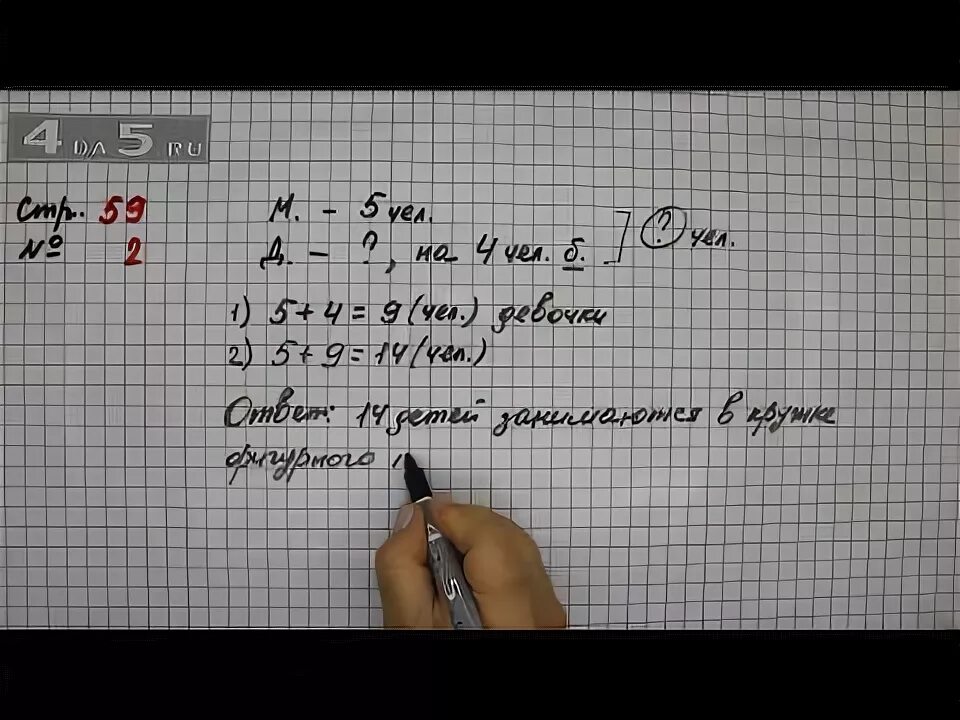 4 DA 5 RU
Стр. 59
№ 2
М. - 5 чел.
Д. - ?, на 4 чел. б.
? чел.
1) 5 + 4 = 9 (чел.) девочки
2) 5 + 9 = 14 (чел.)
Ответ: 14 детей занимаются в кружке
фигурного